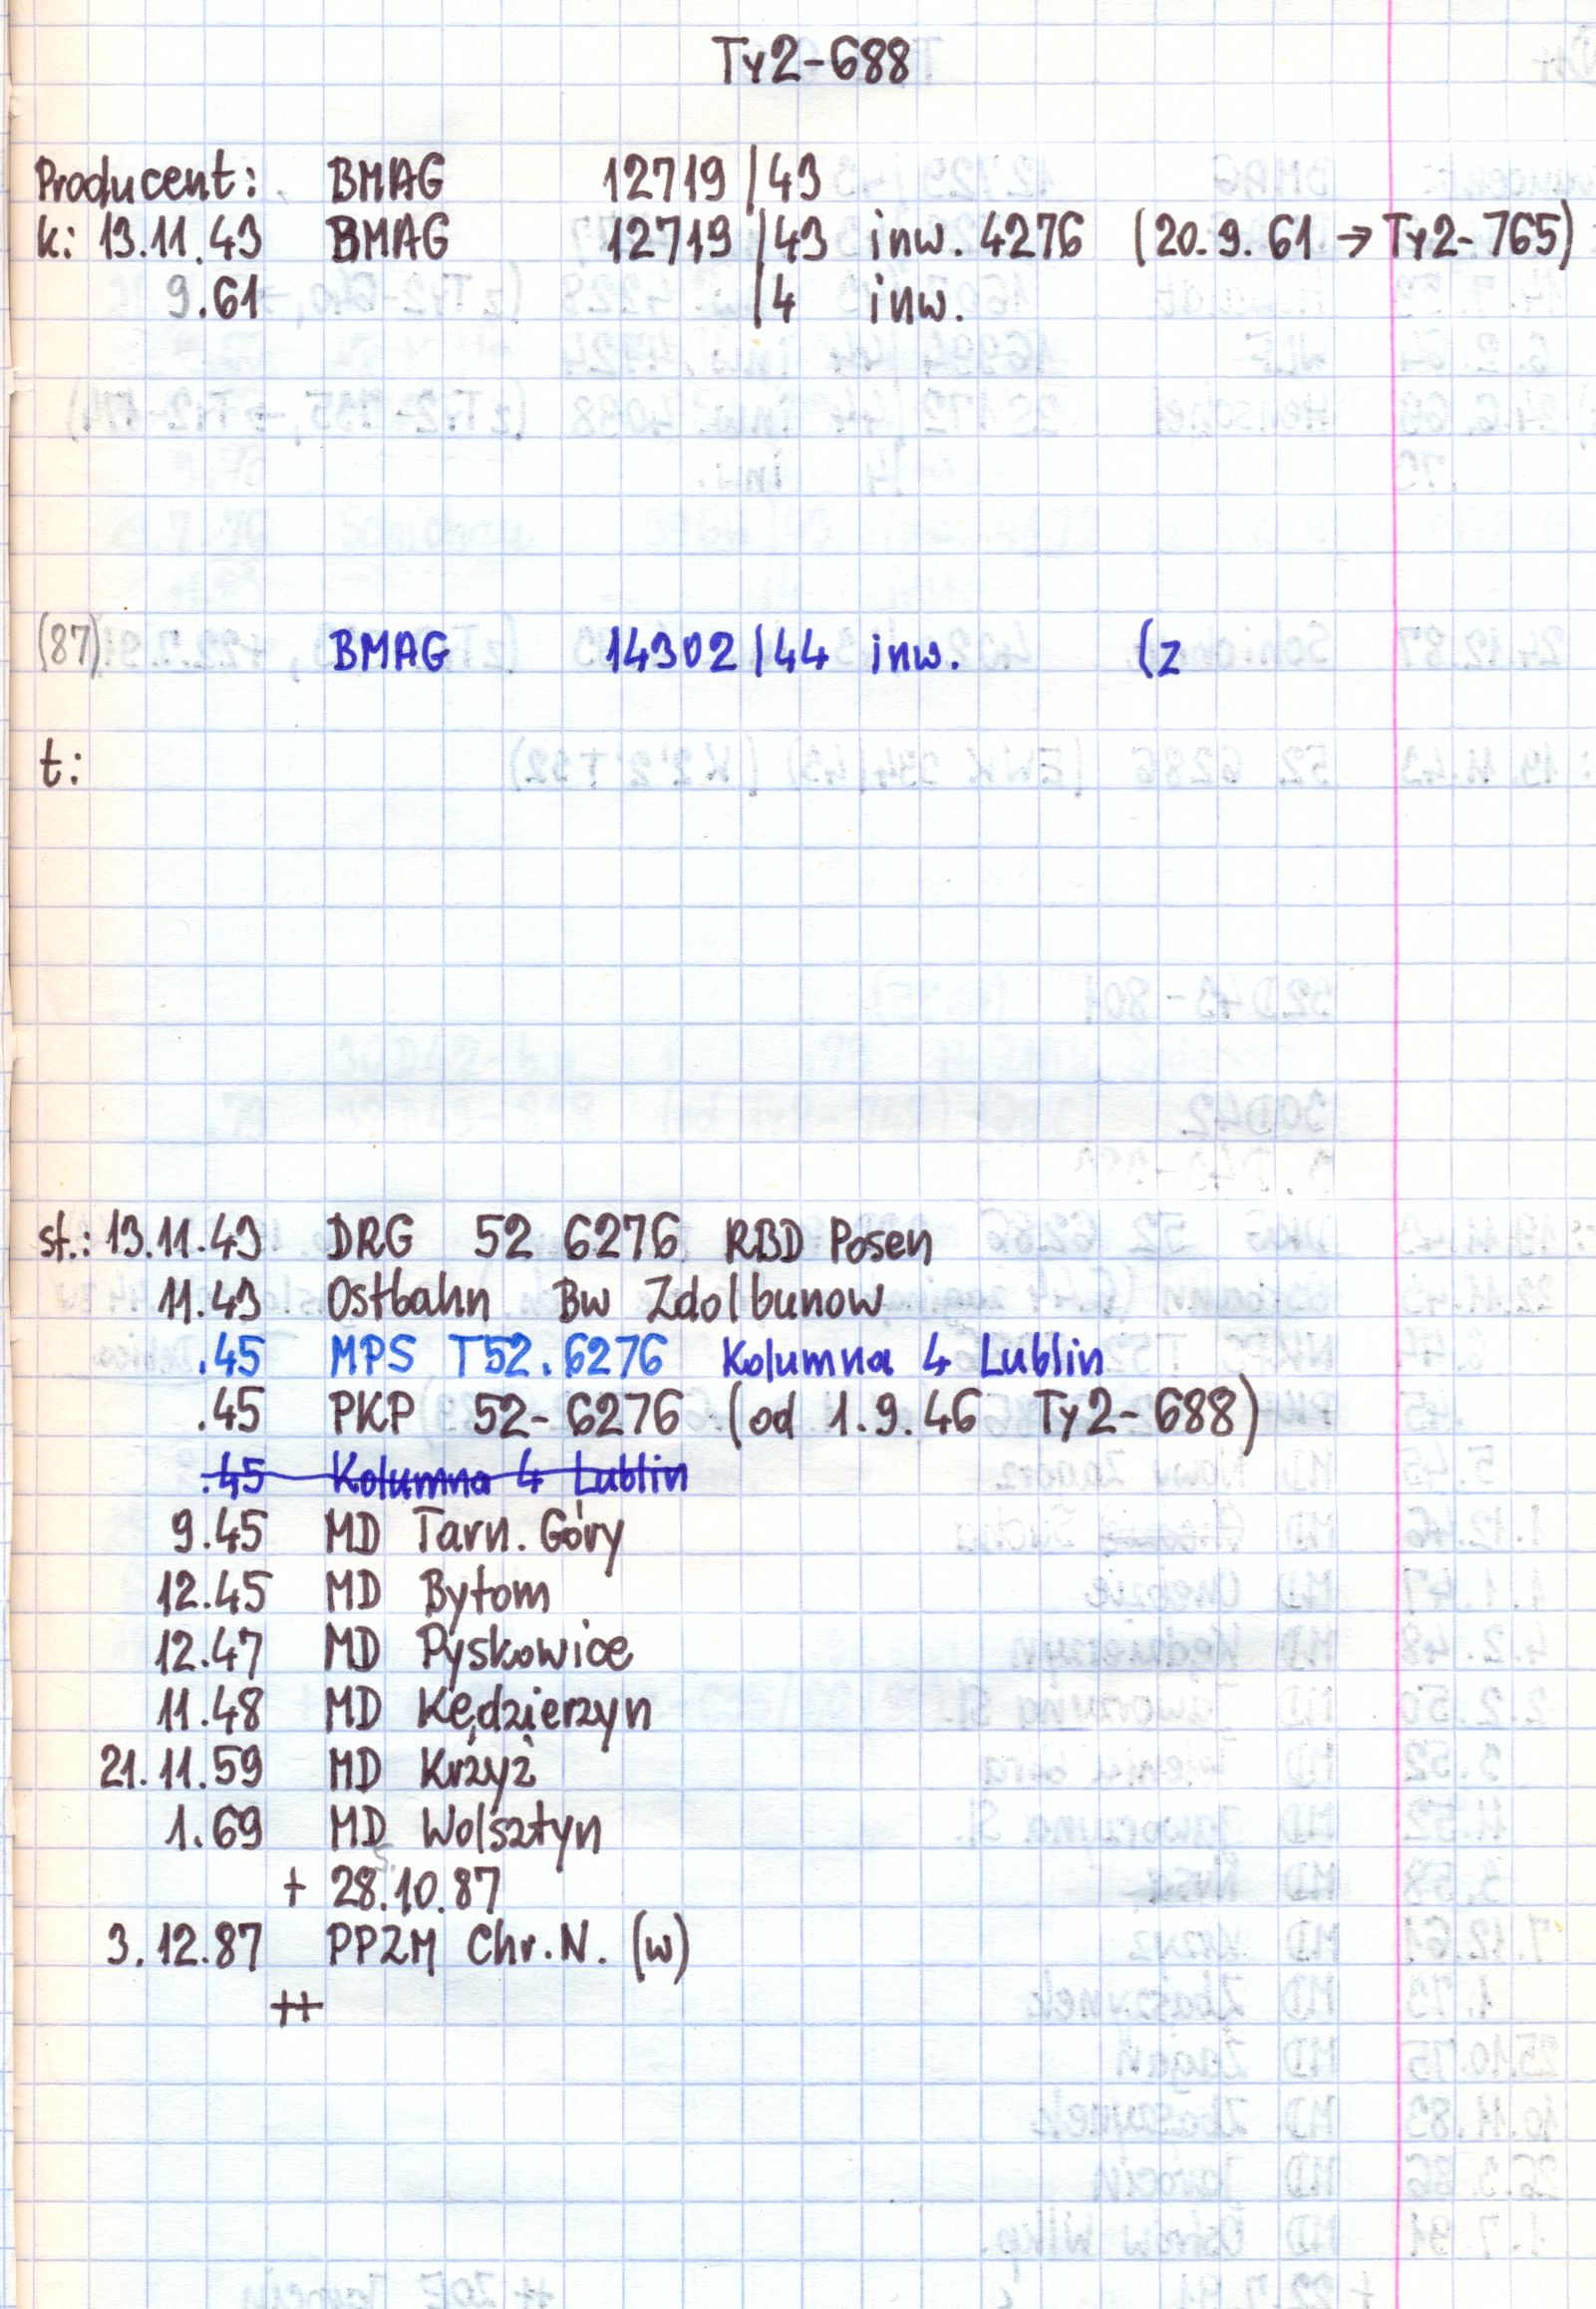 Ty2-688
Producent: BMAG 12719/43
k: 13.11.43 BMAG 12719/43 inw. 4276 (20.9.61 → Ty2-765)
9.61 /4 inw.
(87) BMAG 14302/44 inw. (z
t:
st.: 13.11.43 DRG 52 6276 RBD Posen
11.43 Ostbahn Bw Zdolbunow
.45 MPS T52.6276 Kolumna 4 Lublin
.45 PKP 52-6276 (od 1.9.46 Ty2-688)
.45 Kolumna 4 Lublin
9.45 MD Tarn. Góry
12.45 MD Bytom
12.47 MD Pyskowice
11.48 MD Kędzierzyn
21.11.59 MD Krzyż
1.69 MD Wolsztyn
+ 28.10.87
3.12.87 PPZM Chr.N. (w)
++